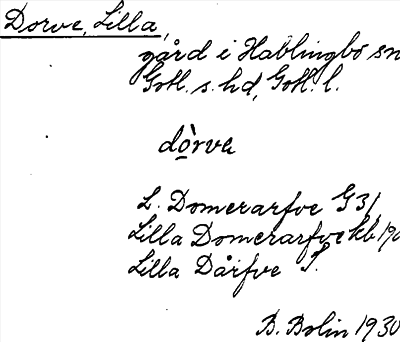 Dorve, Lilla,
gård i Hablingbo sn
Gotl. s. hd, Gotl. l.
dòrva
L. Domerarfve G 31,
Lilla Domerarfve kb 190
Lilla Dårfve S.
B. Bolin 1930